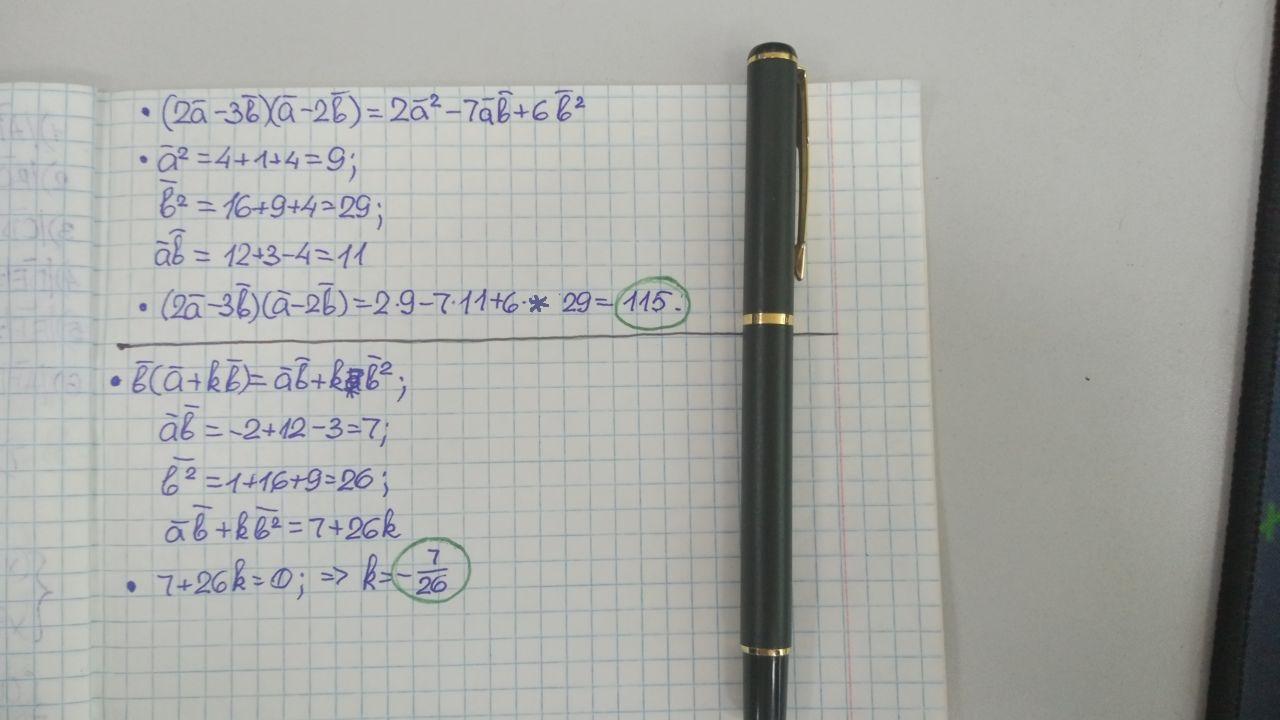 • (2a̅ -3b̅)(a̅ -2b̅) = 2a̅² -7a̅b̅ +6b̅²
• a̅² = 4+1+4=9;
b̅² = 16+9+4=29;
a̅b̅ = 12+3-4=11
• (2a̅ -3b̅)(a̅ -2b̅) = 2·9-7·11+6· 29= 115.
• b̅(a̅ +kb̅)= a̅b̅+kb̅²;
a̅b̅ = -2+12-3=7;
b̅² =1+16+9=26;
a̅b̅ +kb̅² = 7+26k
• 7+26k=0; => k= -7/26